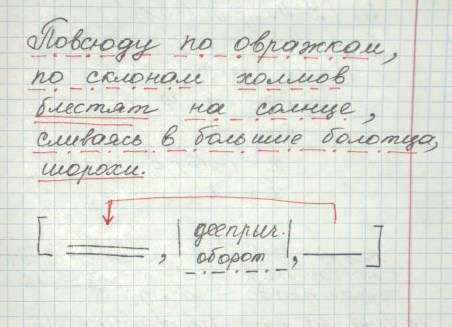 Повсюду по овражкам,
по склонам холмов
блестят на солнце,
сливаясь в большие болотца,
шорохи.
[ , | дееприч. оборот |, ]